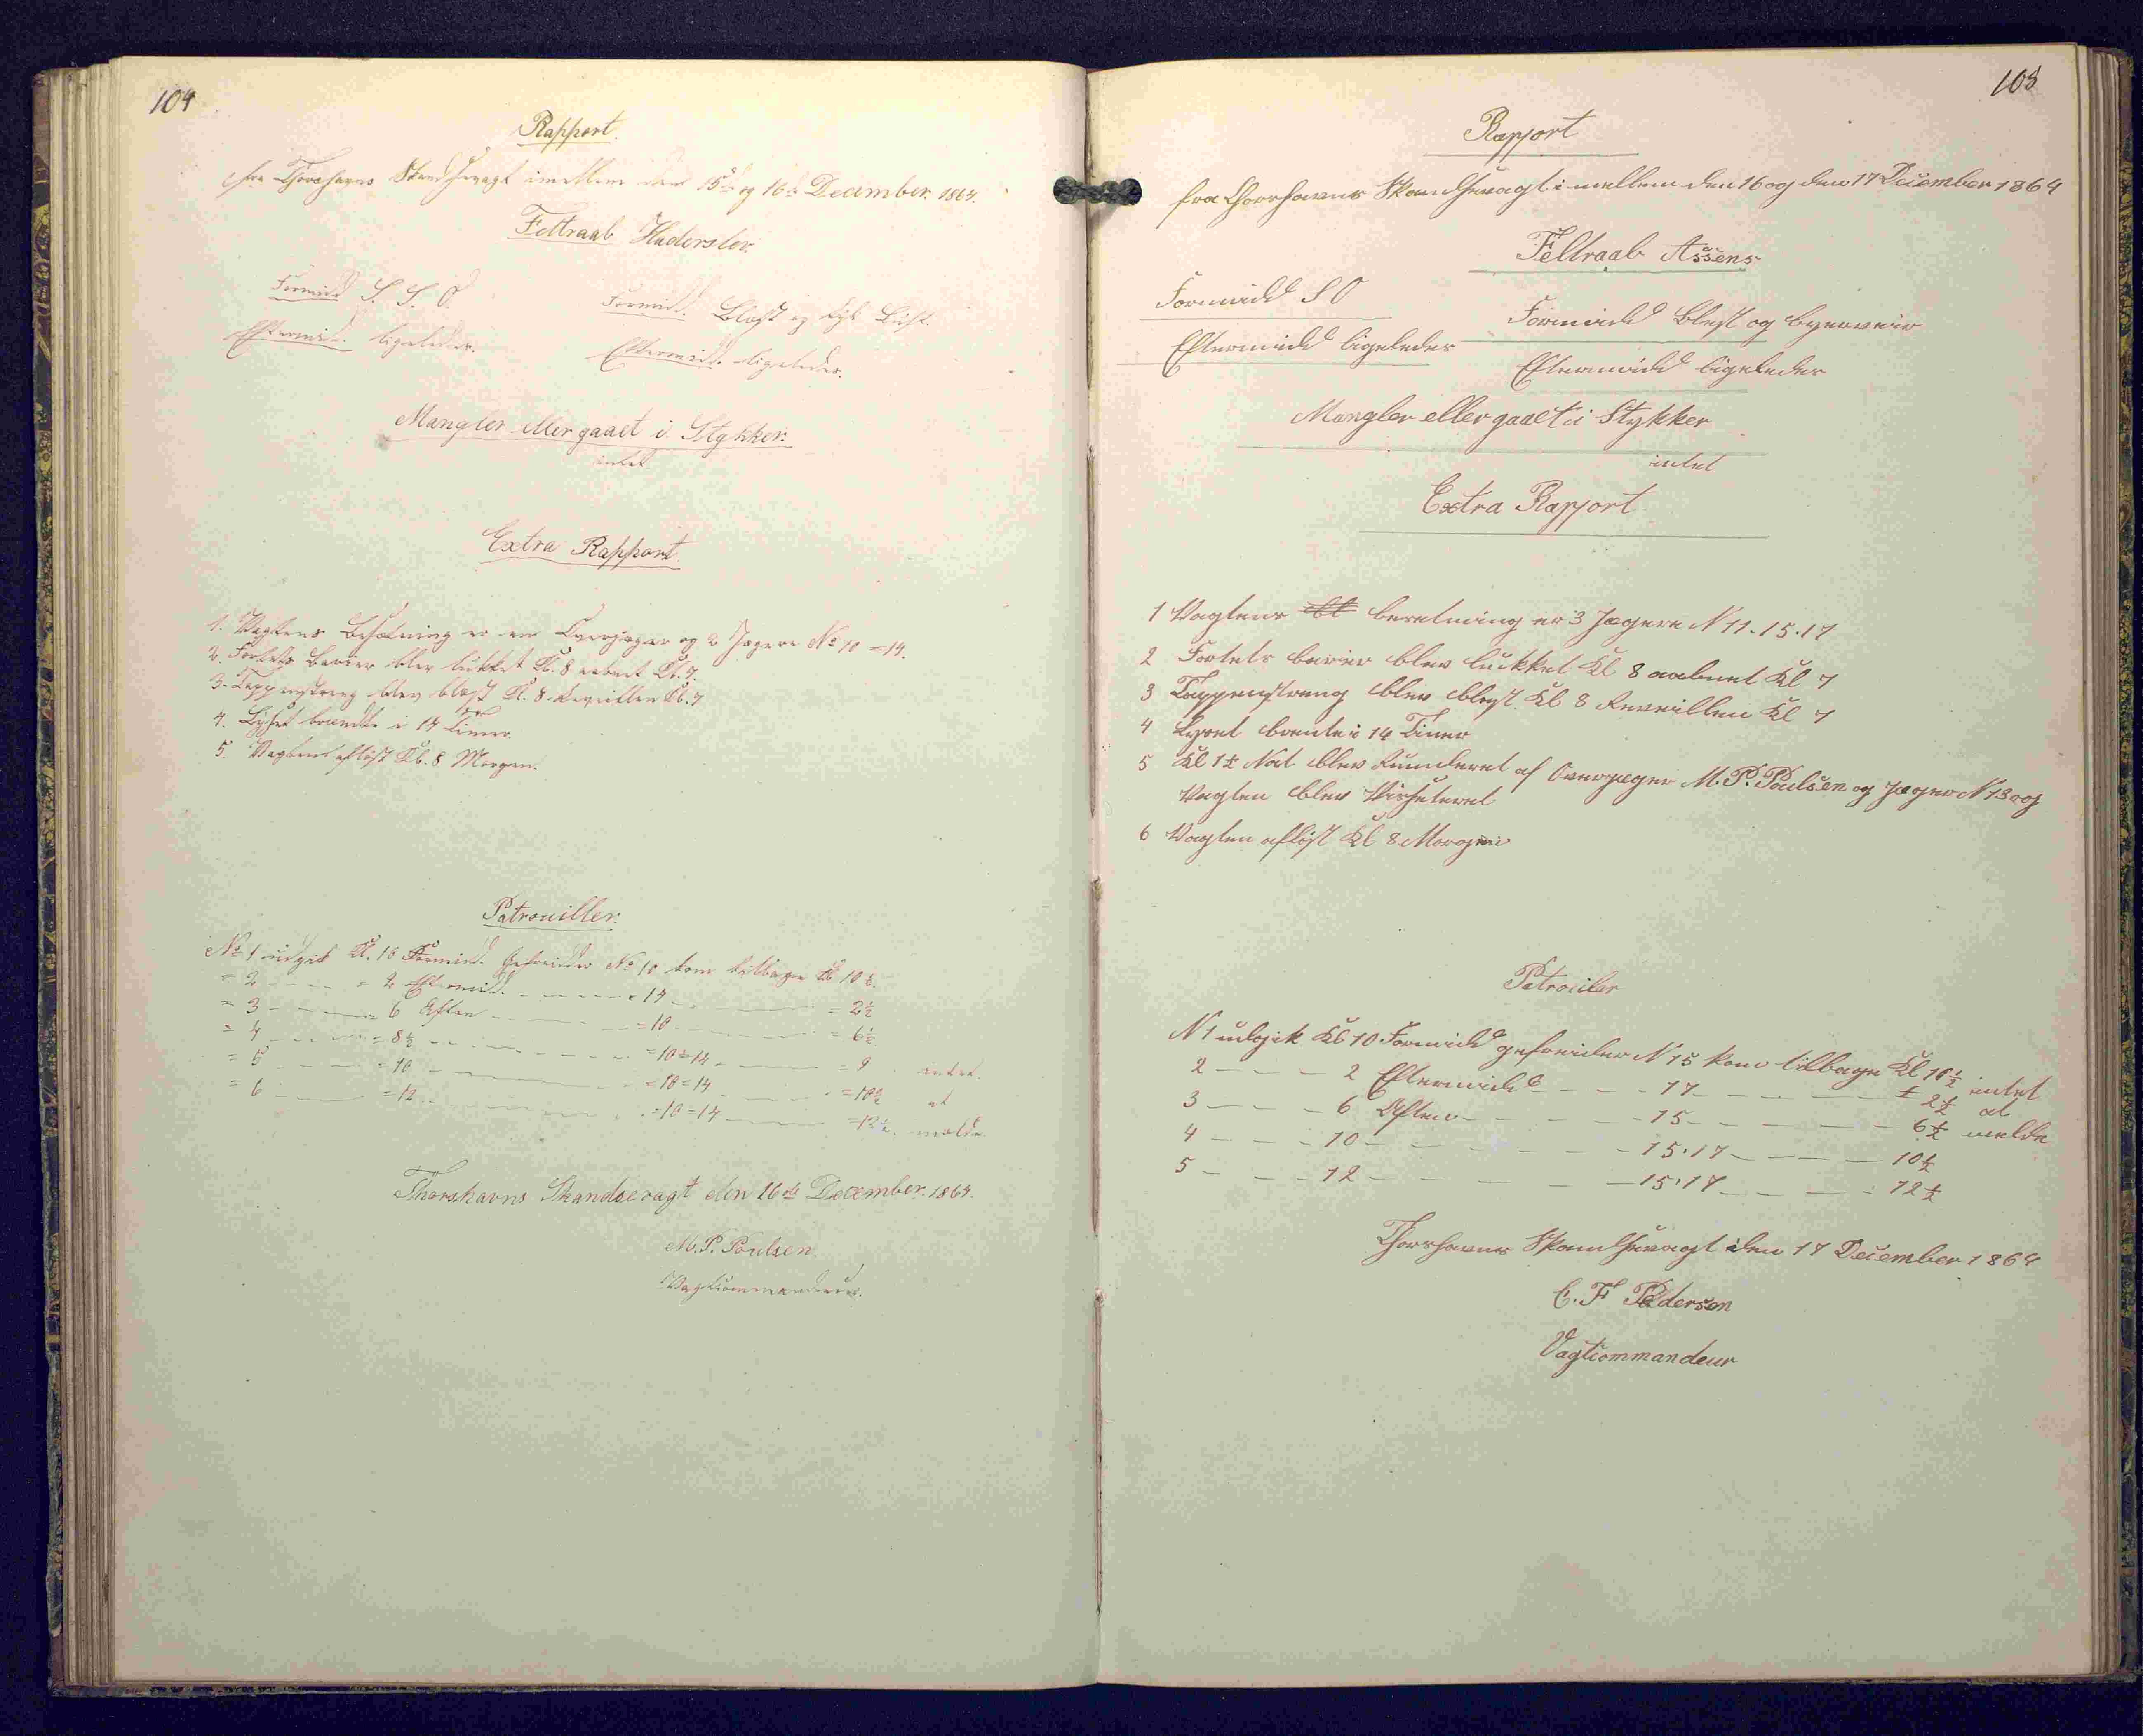 104
Rapport.
fra Thorshavns Skandsevagt imellem den 15de og 16de December 1864.
Feltraab Haderslev.
Formidd. S. S. O
Eftermidd. ligeledes.
Formidd. Blæst og tyk Luft.
Eftermidd. ligeledes.
Mangler eller gaaet i Stykker.
intet
Extra Rapport.
1. Vagtens Besætning er en Overjæger og 2 Jægere No 10 = 14.
2. Fortets Barier blev lukket Kl. 8 aabnet Kl. 7.
3. Tappenstreg blev blæst Kl. 8. Reveillen Kl. 7
4. Lyset brændte i 14 Timer
5. Vagten afløst Kl. 8 Morgen.
Patrouiller.
No 1 udgik Kl. 10 Formidd. Gefreider No 10 kom tilbage Kl. 10½.
= 2 - - - = 2 Eftermidd. - - - = 14 - - - = 2½
= 3 - - - = 6 Aften - - - = 10 - - - = 6½
= 4 - - - = 8½ - - - = 10 = 14 - - - = 9 intet
= 5 - - - = 10 - - - = 10 = 14 - - - = 10½ at
= 6 - - - = 12 - - - = 10 = 14 - - - = 12½ melde
Thorshavns Skandsevagt den 16de December 1864.
M. P. Poulsen.
Vagtcommandeur.
105
Rapport
fra Thorshavns Skandsevagt imellem den 16 og den 17 December 1864
Feltraab Assens
Formidd S O
Eftermidd ligeledes
Formidd Blest og byerveir
Eftermidd ligeledes
Mangler eller gaaet i Stykker
intet
Extra Rapport
1 Vagtens besetning er 3 Jægere N 11. 15. 17
2 Fortets barier blev lukket Kl 8 aabnet Kl 7
3 Tappenstreng blev blest Kl 8 Reveillen Kl 7
4 Lyset brente i 14 Timer
5 Kl 1½ Nat blev Runderet af Overjæger M. P. Poulsen og Jæger N 13 og
Vagten blev Visiteret
6 Vagten afløst Kl 8 Morgen
Patrouiler
N 1 udgik Kl 10 Formidd gefreider N 15 kom tilbage Kl 10½ intet
2 - - - 2 Eftermidd - - - 17 - - - 2½ at
3 - - - 6 Aften - - - 15 - - - 6½ melde
4 - - - 10 - - - 15. 17 - - - 10½
5 - - - 12 - - - 15. 17 - - - 12½
Thorshavns Skandsevagt den 17 December 1864
C. F Pedersen
Vagtcommandeur